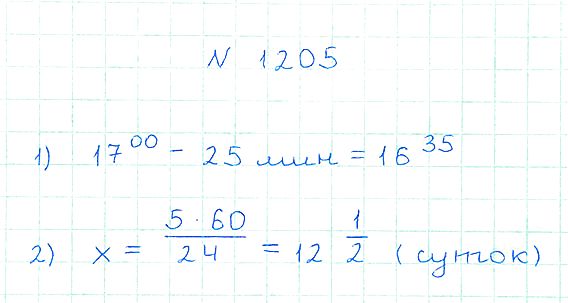 N 1205
1) 17⁰⁰ - 25 мин = 16³⁵
2) x = 5 · 60 / 24 = 12 1/2 (суток)